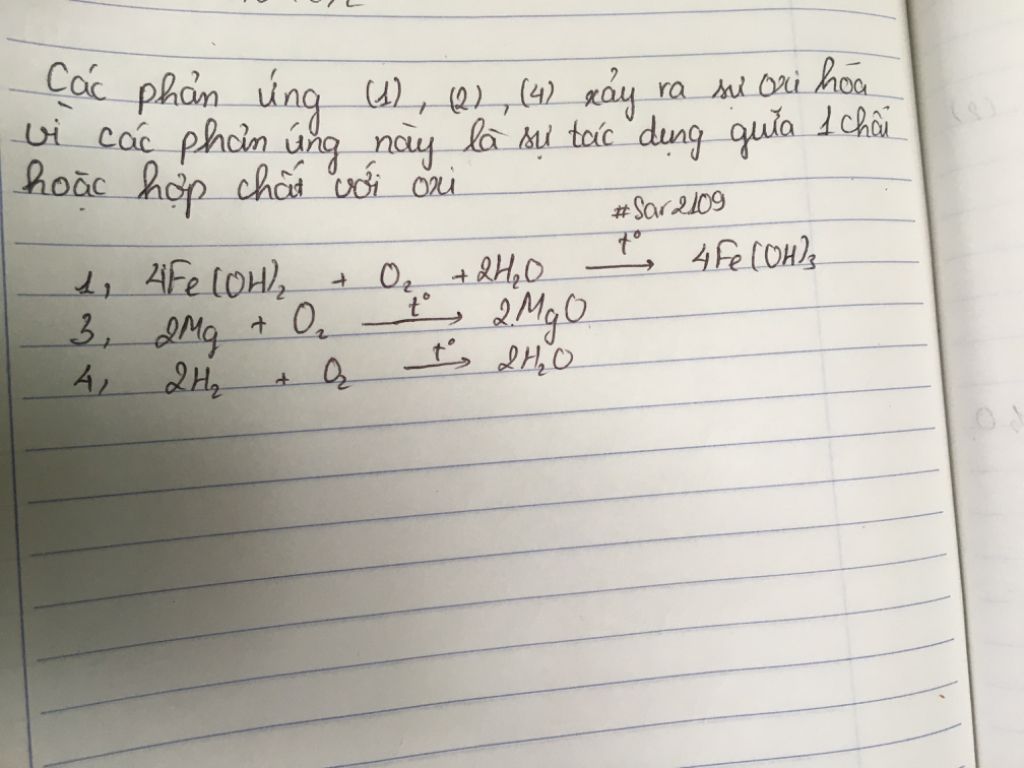 Các phản ứng (1), (2), (4) xảy ra sự oxi hóa
vì các phản ứng này là sự tác dụng giữa 1 chất
hoặc hợp chất với oxi
#Sar2109
1, 4Fe(OH)₂ + O₂ + 2H₂O t° → 4Fe(OH)₃
3, 2Mg + O₂ t° → 2MgO
4, 2H₂ + O₂ t° → 2H₂O